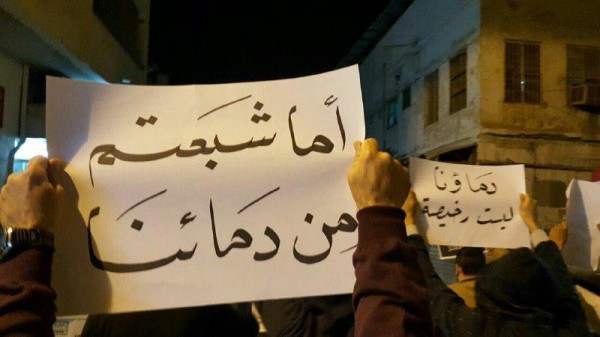 أما شبعتم
من دمائنا
دماؤنا
ليست رخيصة